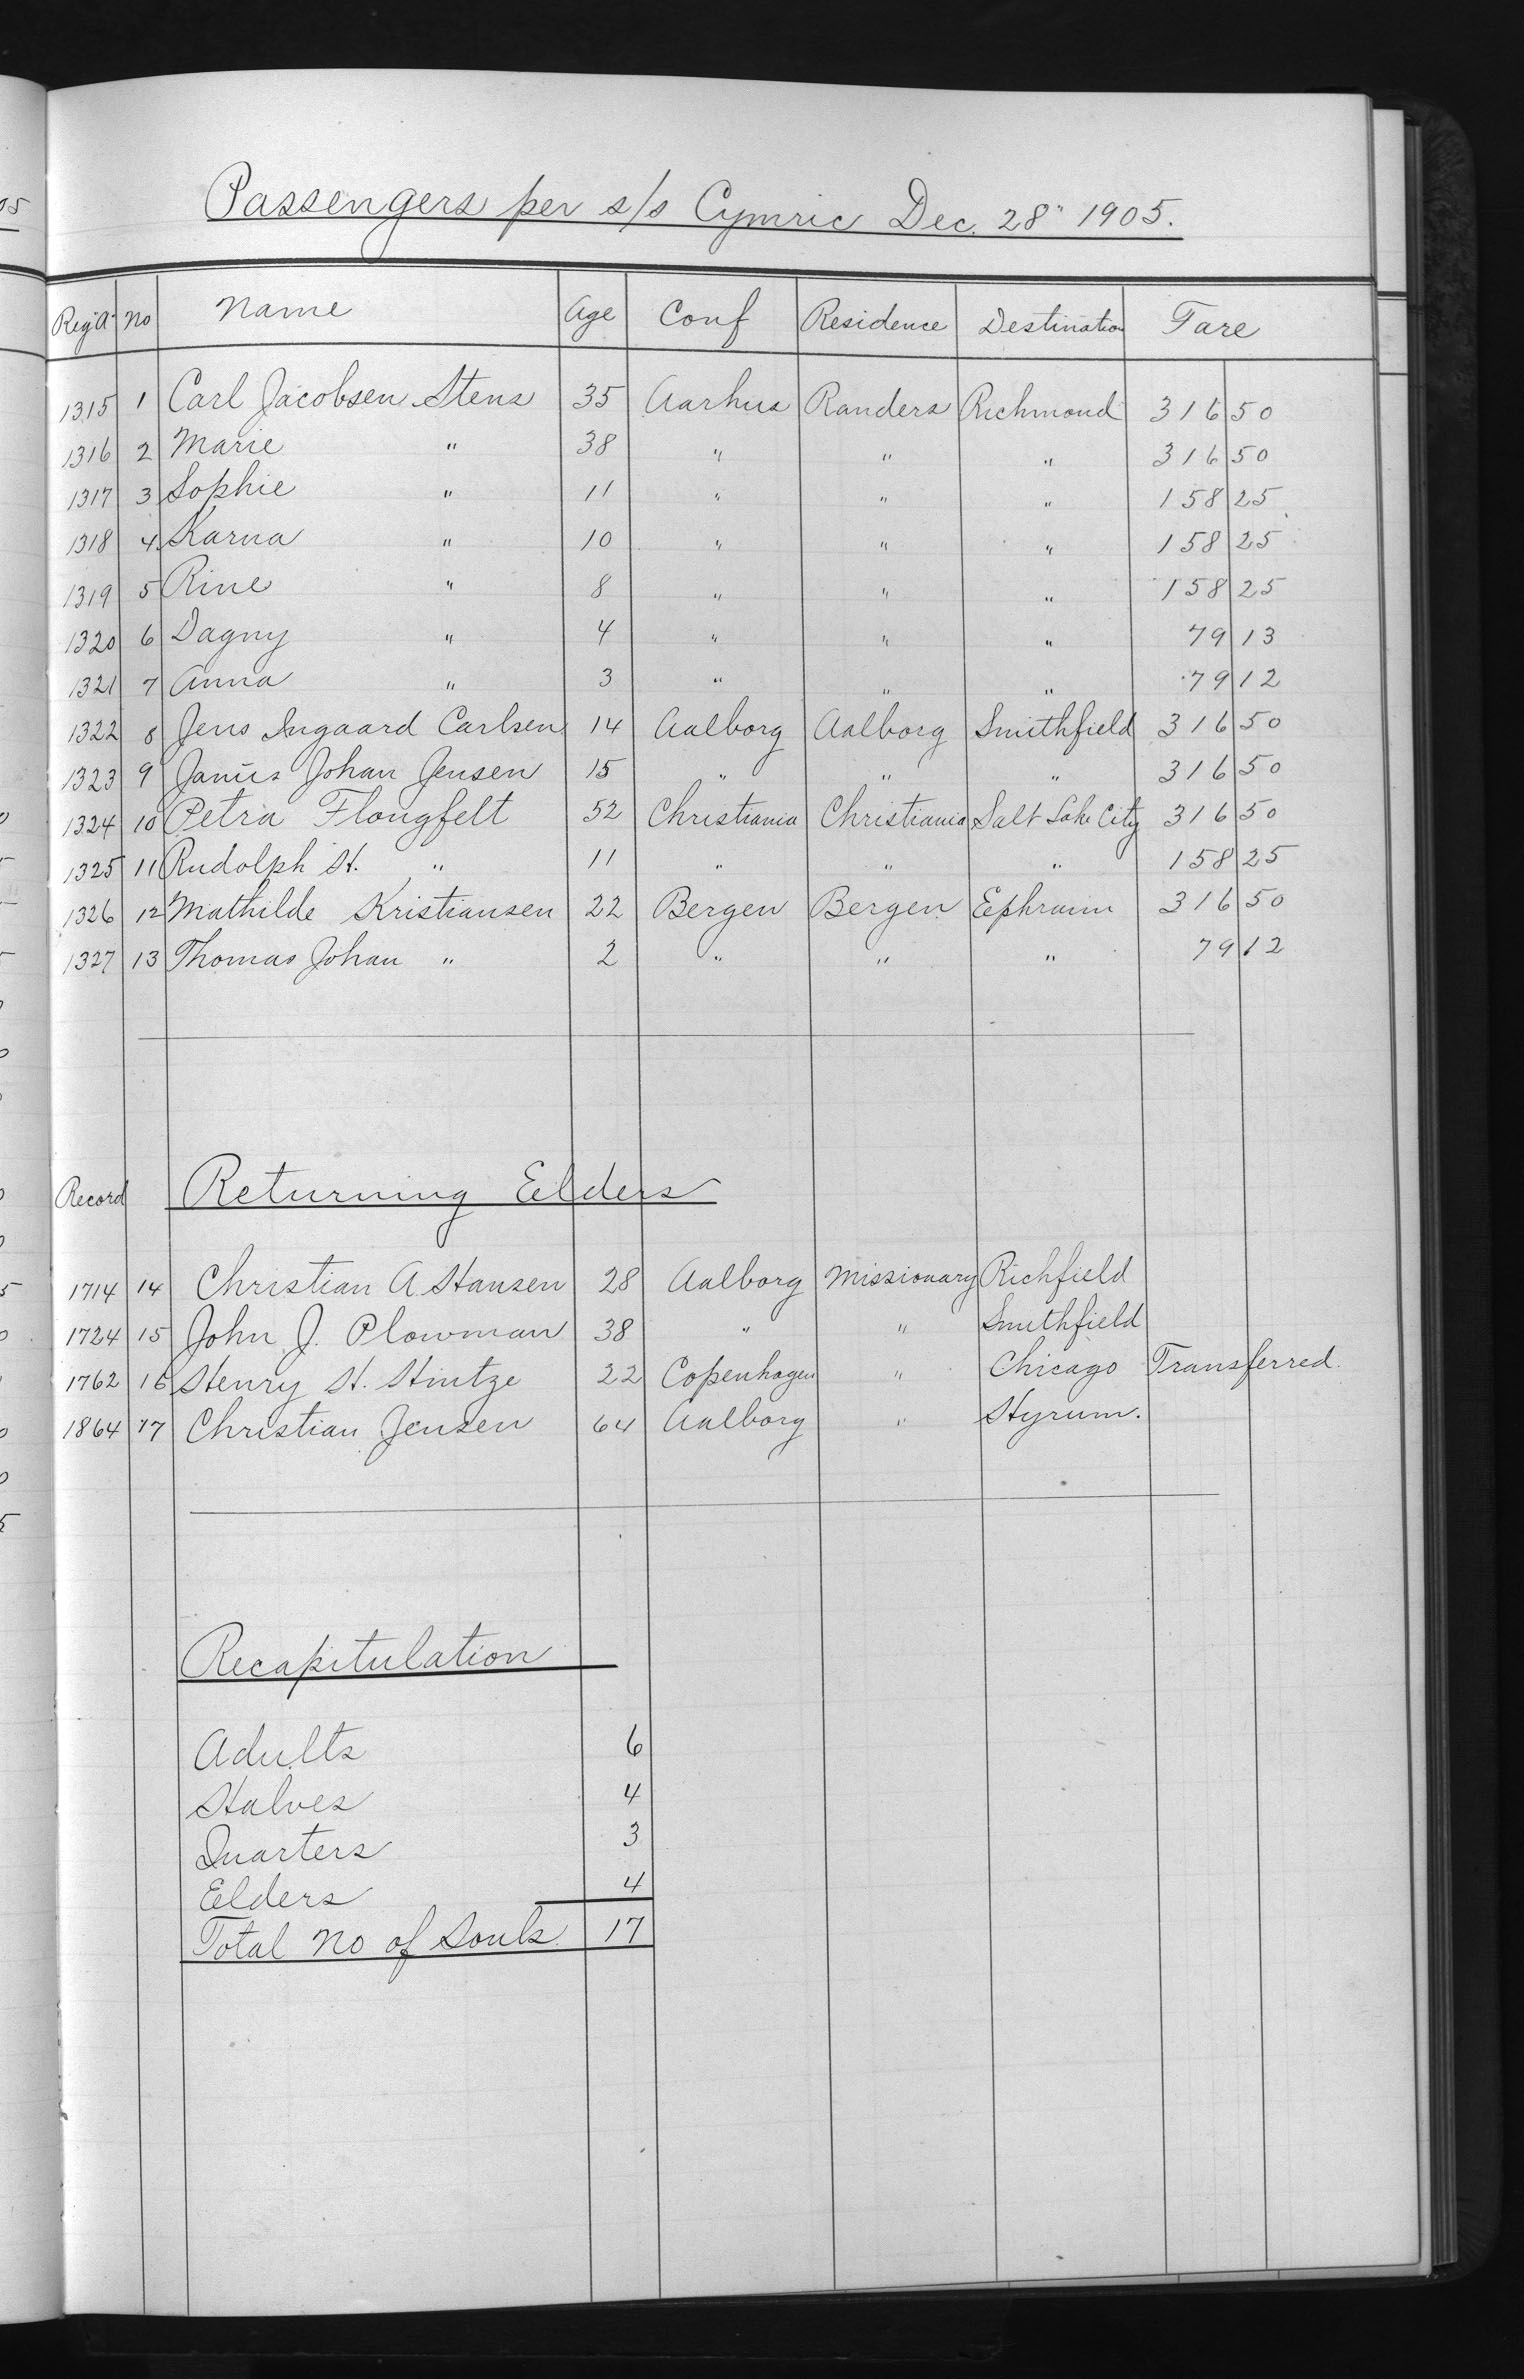 Passengers per s/s Cymric Dec. 28" 1905.
Reg'A' No Name Age Conf Residence Destination Fare
1315 1 Carl Jacobsen Stens 35 Aarhus Randers Richmond 316 50
1316 2 Marie " 38 " " " 316 50
1317 3 Sophie " 11 " " " 158 25
1318 4 Karna " 10 " " " 158 25
1319 5 Rine " 8 " " " 158 25
1320 6 Dagny " 4 " " " 79 13
1321 7 Anna " 3 " " " 79 12
1322 8 Jens Ingaard Carlsen 14 Aalborg Aalborg Smithfield 316 50
1323 9 Janus Johan Jensen 15 " " " 316 50
1324 10 Petra Flougfelt 52 Christiania Christiania Salt Lake City 316 50
1325 11 Rudolph H. " 11 " " " 158 25
1326 12 Mathilde Kristiansen 22 Bergen Bergen Ephraim 316 50
1327 13 Thomas Johan " 2 " " " 79 12
Record Returning Elders
1714 14 Christian A. Hansen 28 Aalborg Missionary Richfield
1724 15 John J. Plowman 38 " " Smithfield
1762 16 Henry H. Hintze 22 Copenhagen " Chicago Transferred.
1864 17 Christian Jensen 64 Aalborg " Hyrum.
Recapitulation
Adults 6
Halves 4
Quarters 3
Elders 4
Total No of Souls 17